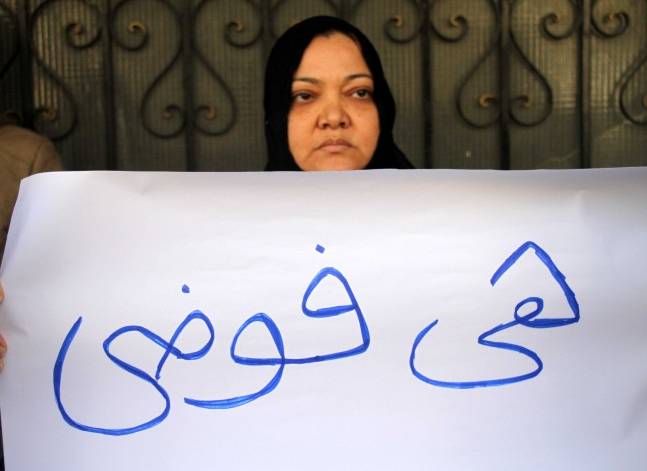 هى فوضى